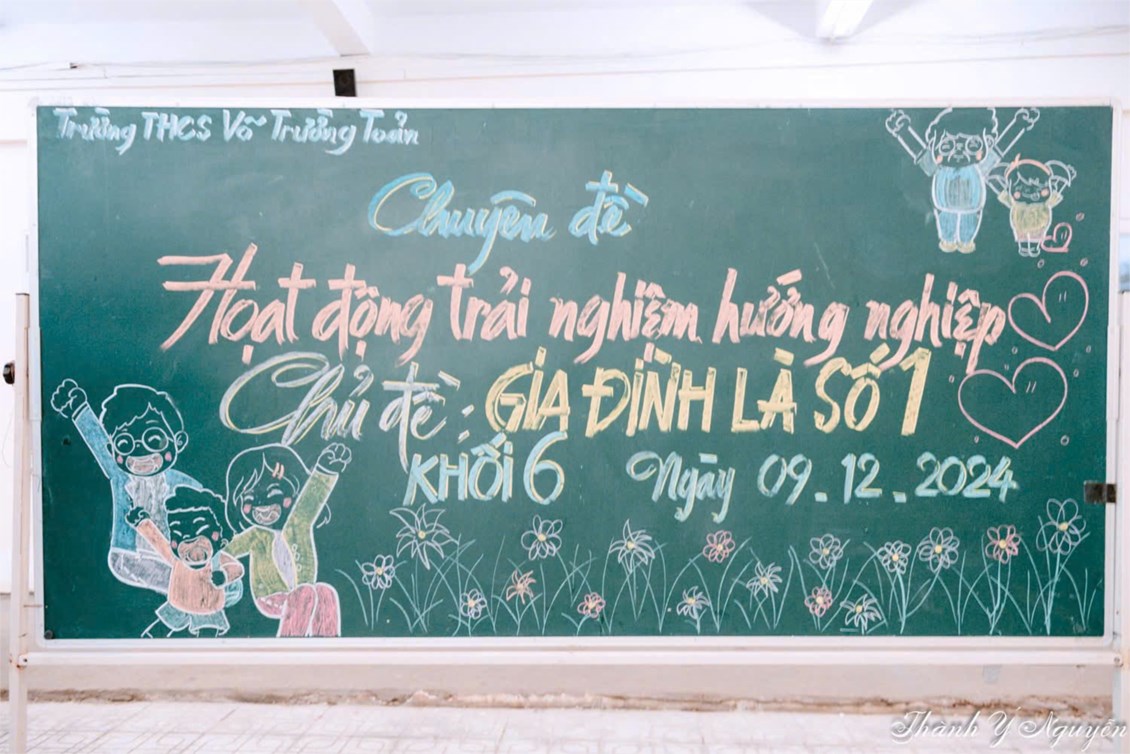 Trường THCS Võ Trường Toản
Chuyên đề
Hoạt động trải nghiệm hướng nghiệp
Chủ đề : GIA ĐÌNH LÀ SỐ 1
KHỐI 6 Ngày 09.12.2024
Thành Ý Nguyễn